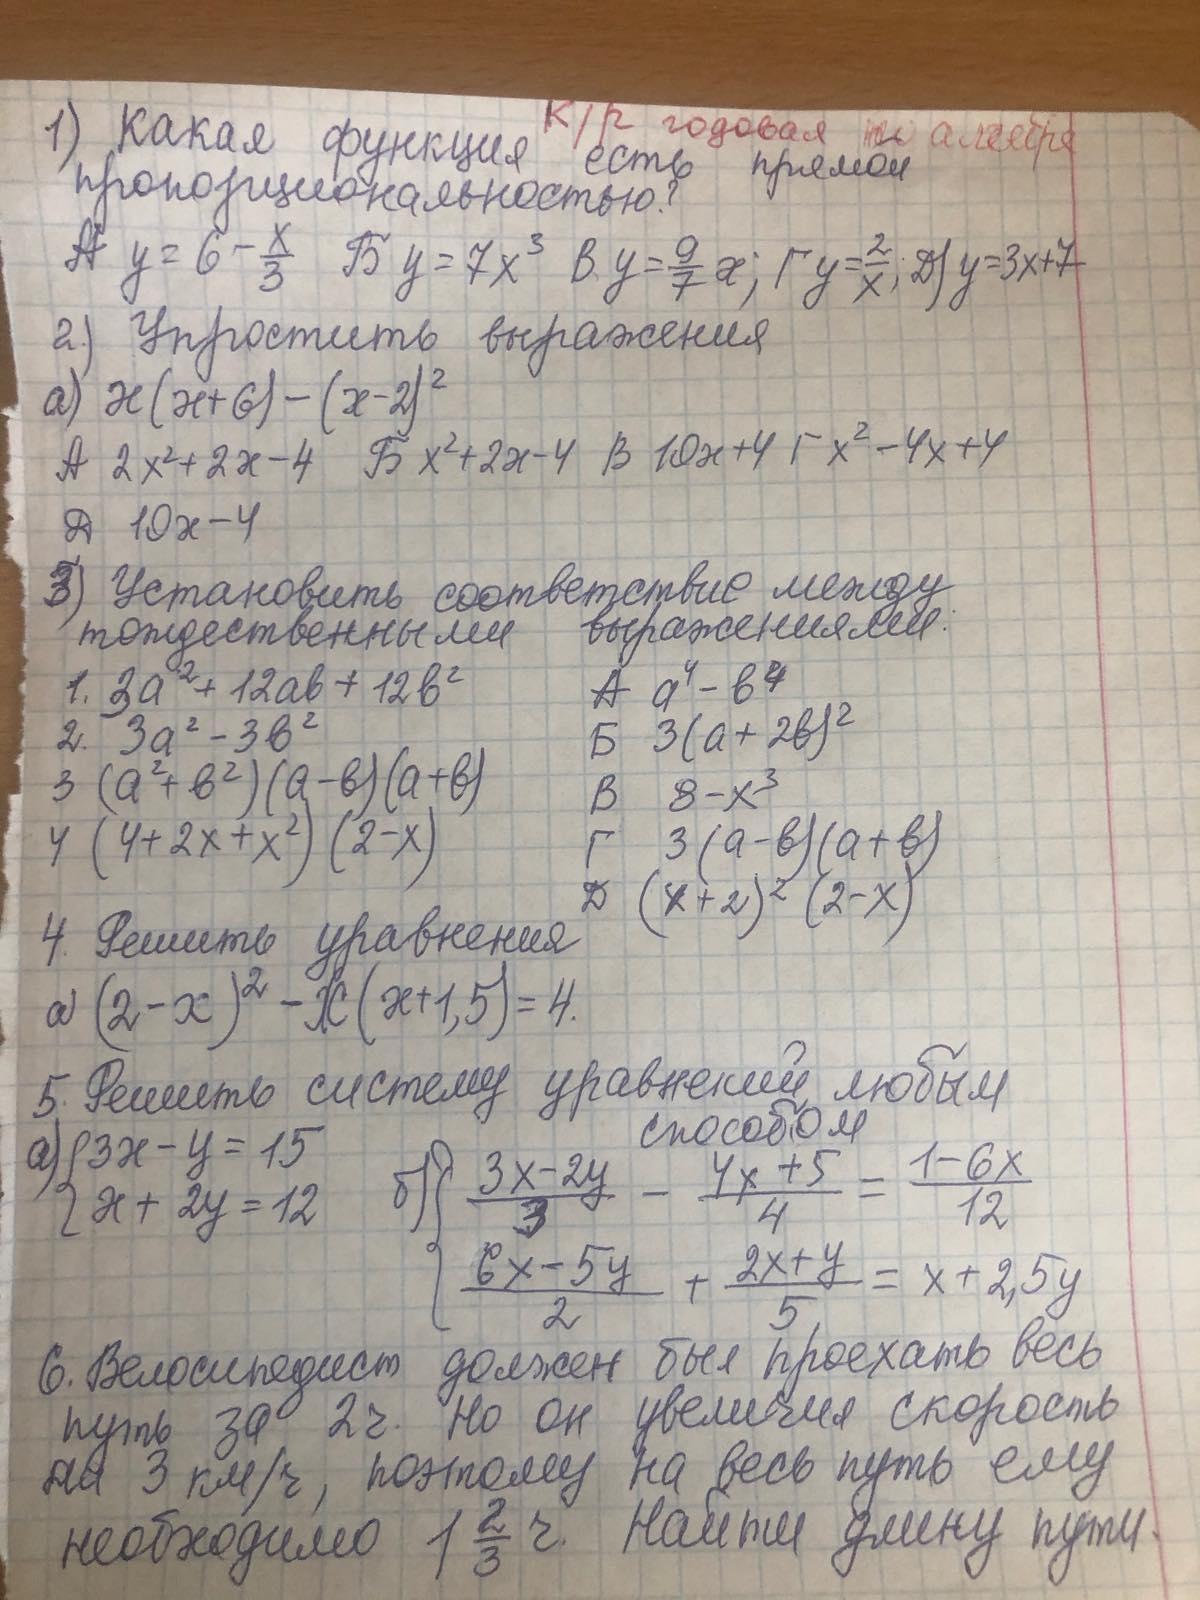 К/р годовая по алгебре
1) Какая функция есть прямой
пропорциональностью?
А y = 6 - x/3 Б y = 7x³ В. y = 9/7 x; Г y = 2/x; Д) y = 3x+7
2.) Упростить выражения
а) x(x+6) - (x-2)²
А 2x²+2x-4 Б x²+2x-4 В 10x+4 Г x²-4x+4
Д 10x-4
3) Установить соответствие между
тождественными выражениями:
1. 3a²+12ab+12b² А a⁴-b⁴
2. 3a²-3b² Б 3(a+2b)²
3 (a²+b²)(a-b)(a+b) В 8-x³
4 (4+2x+x²)(2-x) Г 3(a-b)(a+b)
Д (x+2)²(2-x)
4. Решить уравнения
а) (2-x)² - x(x+1,5) = 4.
5. Решить систему уравнений любым
способом
а) { 3x-y=15 б) { (3x-2y)/3 - (4x+5)/4 = (1-6x)/12
{ x+2y=12 { (6x-5y)/2 + (2x+y)/5 = x+2,5y
6. Велосипедист должен был проехать весь
путь за 2ч. Но он увеличил скорость
на 3 км/ч, поэтому на весь путь ему
необходимо 1 2/3 ч. Найти длину пути.